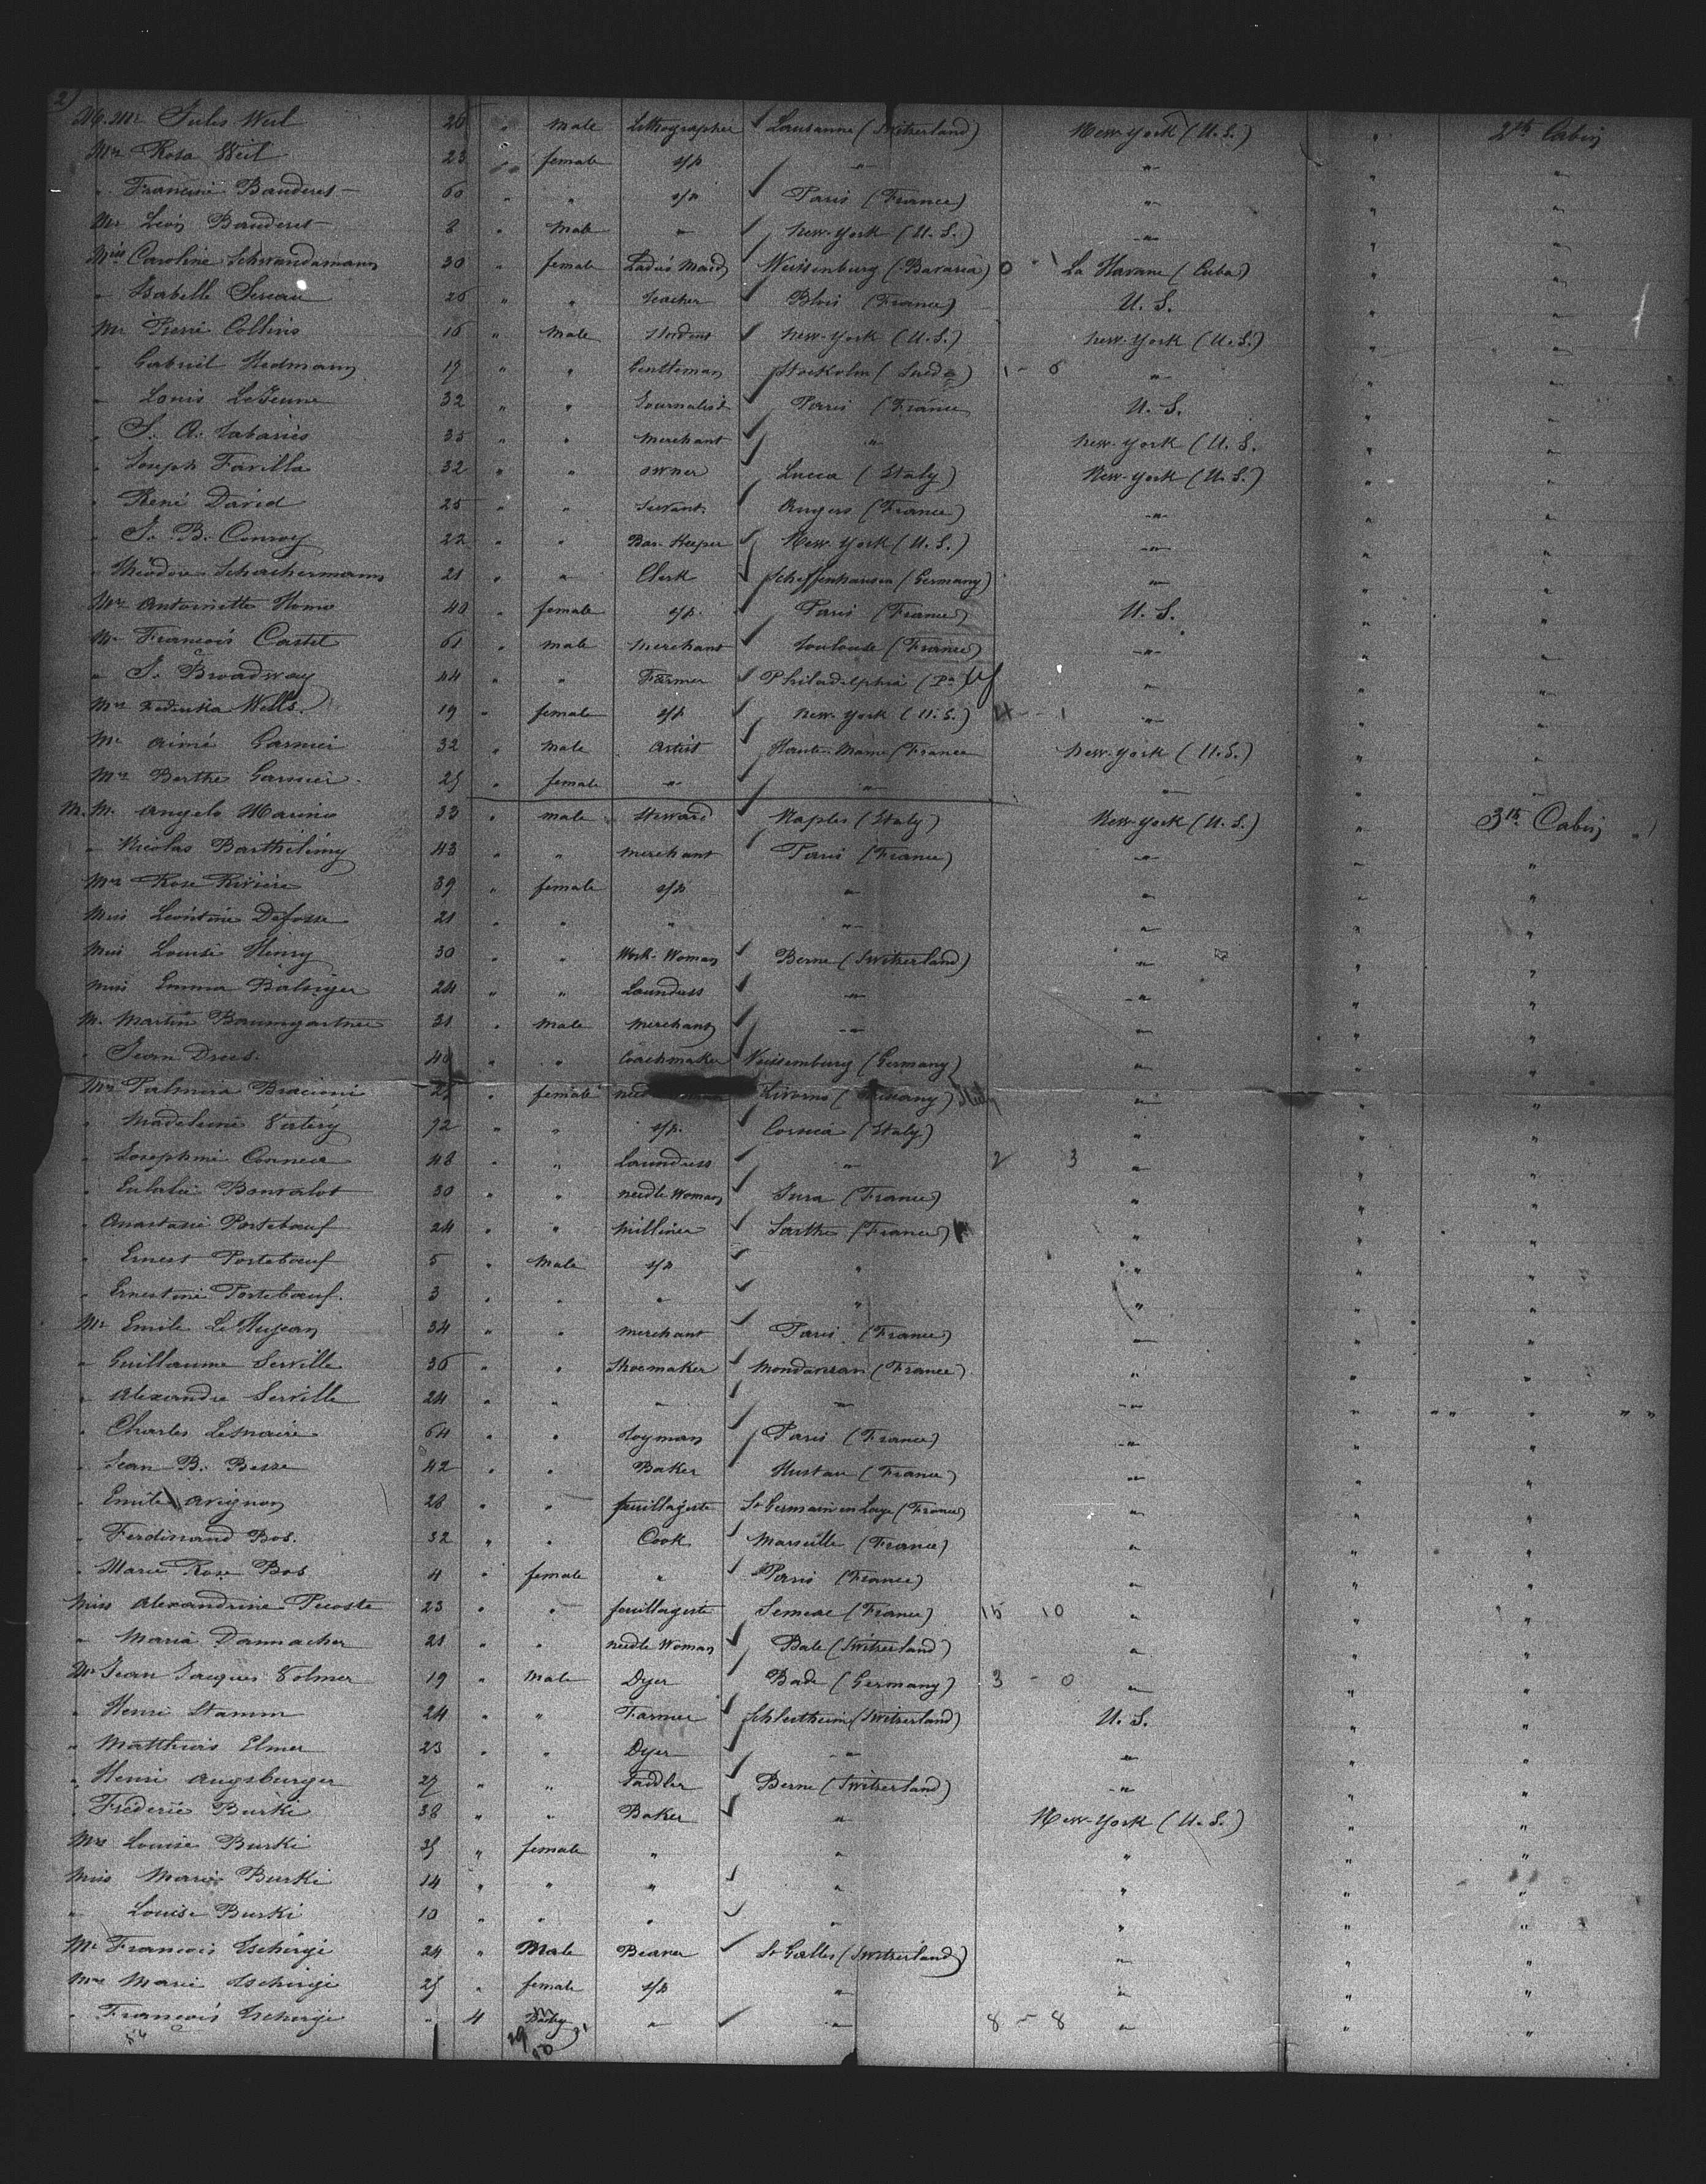 2)
M. Mr Jules Weil 26 " Male Lithographer Lausanne (Switzerland) New-York (U.S.) " 2th Cabin
Mrs Rosa Weil 23 " female s/p " " " "
" Francine Banderet 60 " " s/p Paris (France) " " "
Mr Léon Banderet 8 " Male " New-York (U.S.) " " "
Miss Caroline Schwandamann 30 " female Ladie's Maid Weissenburg (Bavaria) 0 - 1 La Havane (Cuba) " "
" Isabelle Sereau 26 " " Teacher Blois (France) U.S. " "
Mr Pierre Collins 16 " Male Student New-York (U.S.) New-York (U.S.) " "
" Gabriel Hedmann 19 " " Gentleman Stockolm (Suède) 1 - 6 " " "
" Louis LeJeune 32 " " Journalist Paris (France U.S. " "
" S. A. Tabariès 35 " " Merchant " New-York (U.S. " "
" Joseph Favilla 32 " " owner Lucca (Italy) New-York (U.S.) " "
" René David 25 " " Servant Angers (France) " " "
" J. B. Conroy 22 " " Bar-Keeper New-York (U.S.) " " "
" Théodore Schachermann 21 " " Clerk Scheffenhausen (Germany) " " "
Mrs Antoinette Homo 40 " female s/p. Paris (France) U.S. " "
Mr François Castel 61 " male Merchant Toulouse (France) " " "
" J. Broadway 44 " " Farmer Philadelphia (Pa " " "
Mrs Federika Wells. 19 " female s/p New-York (U.S.) 4 - 1 " " "
Mr Aimé Garnier 32 " Male Artist Haute-Marne (France New-York (U.S.) " "
Mrs Berthe Garnier 25 " female " " " " "
M. M. Angelo Marino 33 " male Steward Naples (Italy) New-York (U.S.) " 3th Cabin
" Nicolas Barthélémy 43 " " merchant Paris (France) " " "
Mrs Rose Rivière 39 " female s/p " " " "
Miss Léontine Defosse 21 " " " " " " "
Miss Louise Henry 30 " " Work-Woman Berne (Switzerland) " " "
Miss Emma Balsiger 24 " " Laundress " " " "
M. Martin Baumgartner 31 " Male Merchant " " " "
" Jean Drees. 40 " " Coachmaker Weissemburg (Germany) " " "
Mrs Palmira Bracioni 25 " female Livorno " " "
" Madeleine Vatéry 72 " " s/p. Corsica (Italy) " " "
" Josephine Connea 48 " " Laundress " 2 3 " " "
" Eulalie Bonvalot 30 " " needle Woman Jura (France) " " "
" Anastasie Portebœuf 24 " " Milliner Sarthe (France) " " "
" Ernest Portebœuf 5 " Male s/p " " " "
" Ernestine Portebœuf. 3 " " " " " " "
Mr Emile Le Hujean 34 " " merchant Paris (France) " " "
" Guillaume Serville 36 " " Shoemaker Mondaveran (France) " " "
" Alexandre Serville 24 " " " " " " "
" Charles Lemaire 64 " " Toyman Paris (France) " " "
" Jean B. Besse 42 " " Baker (France) " " "
" Emile Avignon 28 " " feuillagiste St Germain en Laye (France) " " "
" Ferdinand Bos. 32 " " Cook Marseille (France) " " "
" Marie Rose Bos 4 " female " Paris (France) " " "
Miss Alexandrine Pecoste 23 " " feuillagiste Semeac (France) 15 10 " " "
" Maria Dannacher 21 " " needle Woman Bale (Switzerland) " " "
Mr Jean Jacques Volmer 19 " Male Dyer Bade (Germany) 3 - 0 " " "
" Henri Stamm 24 " " Farmer Schleitheim (Switzerland) U.S. " "
" Matthias Elmer 23 " " Dyer " " " "
" Henri Augsburger 27 " " Saddler Berne (Switzerland) " " "
" Fréderic Burki 38 " " Baker " New-York (U.S.) " "
Mrs Louise Burki 35 " female " " " " "
Miss Marie Burki 14 " " " " " " "
" Louise Burki 10 " " " " " " "
Mr François Eschirgi 24 " Male St Galles (Switzerland) " " "
Mrs Marie Eschirgi 25 " female s/p " " " "
" François Eschirgi " 4 " " 8 - 8 " " "